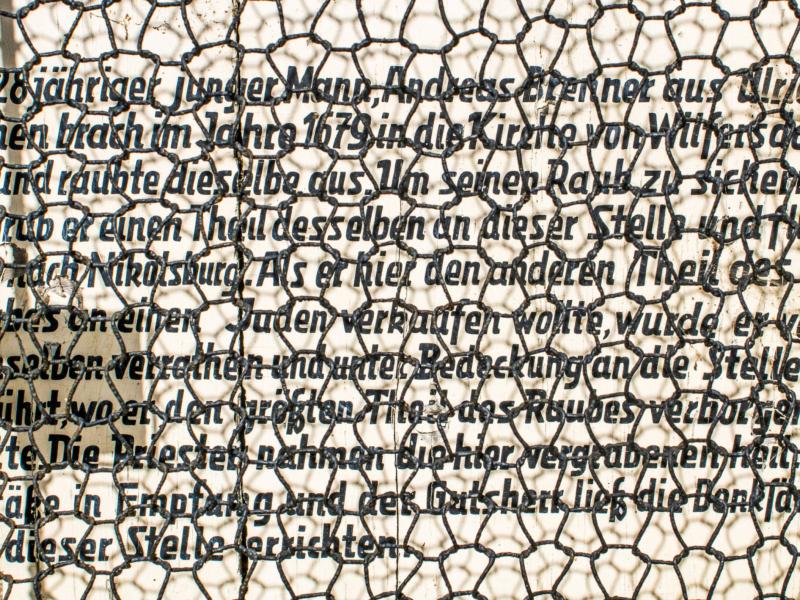 28 jähriger junger Mann, Andreas Brenner aus Ulri
nen brach im Jahre 1679 in die Kirche von Wilfersdo
und raubte dieselbe aus. Um seinen Raub zu sichern
rub er einen Theil desselben an dieser Stelle und fl
nach Nikolsburg. Als er hier den anderen Theil des
bes an einen Juden verkaufen wollte, wurde er v
selben verrathen und unter Bedeckung an die Stelle
ührt, wo er den größten Theil des Raubes verborgen
te. Die Priester nahmen die hier vergrabenen heil
äße in Empfang und der Gutsherr ließ die Denksä
dieser Stelle errichten.